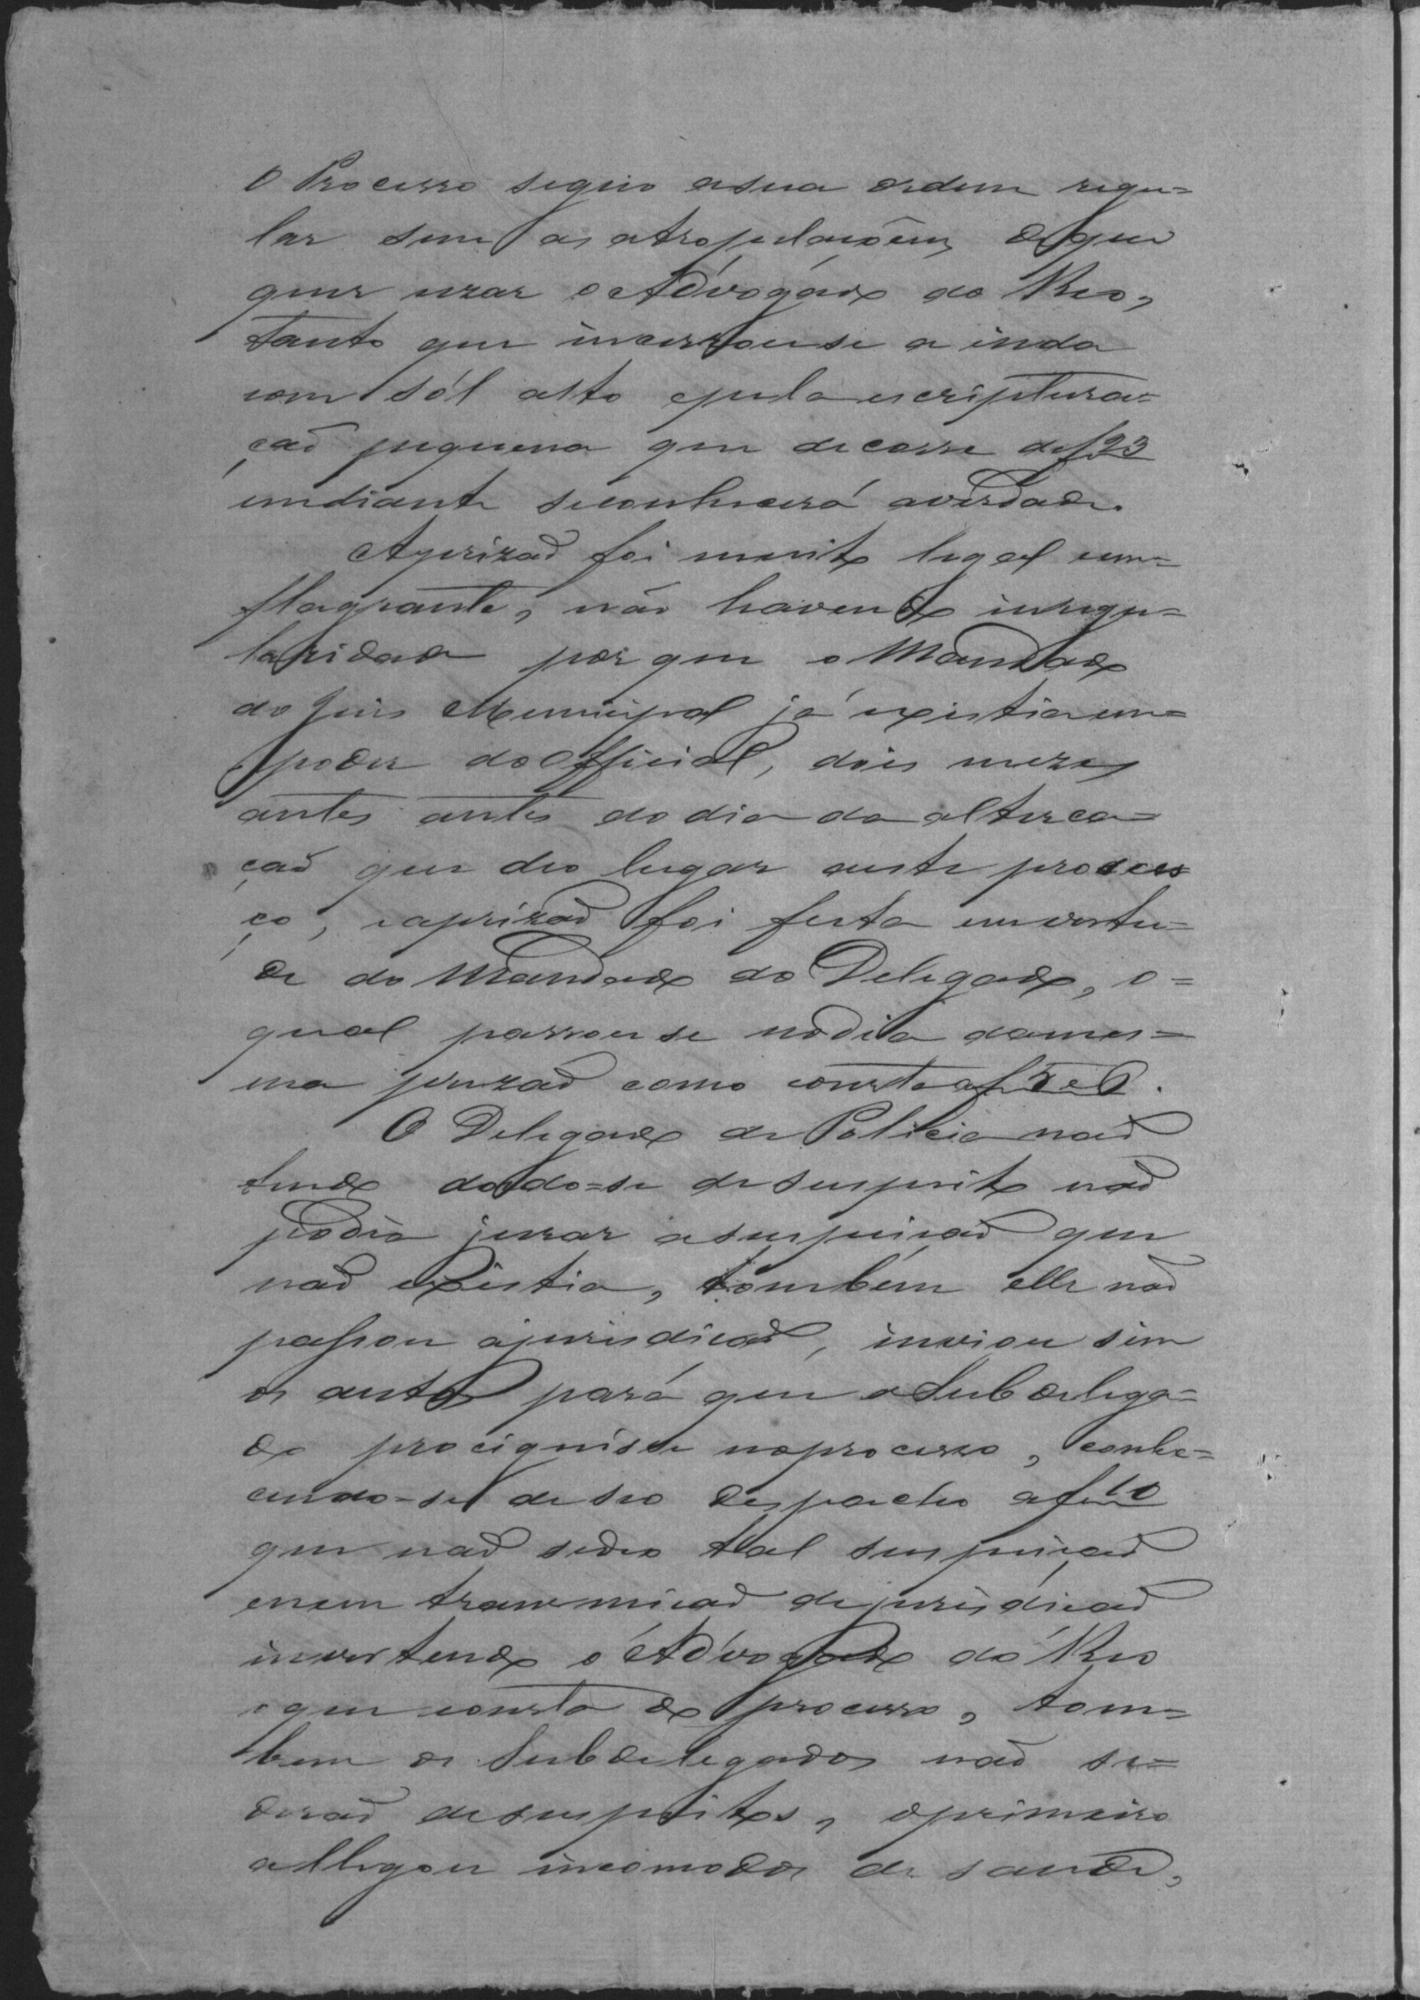 O Processo seguio asua ordem regu=
lar sem as atropelaçoens, deque
quer uzar o Advogádo do Reo,
tanto que incerrouse a inda
com sól alto epela escriptura=
çaõ pequena que decorre def 23
emdiante seconhecerá averdade.
Aprizaõ foi muito legal em=
flagrante, não havendo irregu=
laridade por que o Mandado
do Juis Municipal já existia em=
poder do Official, dois mezes
antes antes do dia da alterca=
çaõ que deo lugar aeste proces
ço, eaprizaõ foi feita emvertu=
de do Mandado do Delegado, o=
qual passouse nodia dames=
ma prizaõ como consta af
O Delegado de Policia naõ
tendo dado=se desuspeito naõ
podia jurar asuspeiçaõ que
naõ existia, tombém elle naõ
passou ajurisdicaõ, inviou sim
os autos pará que o Subdelega=
do prociguíse noprocesso, conhe=
cendo=se de seo despacho af 10
que naõ sedeo tal suspeiçaõ
enem transmicaõ dejurisdicaõ
invertendo o Advogado do Reo
oque consta do processo, tom=
bem os Subdelegados naõ se=
deraõ desuspeitos, oprimeiro
allegou incomodos de saude,